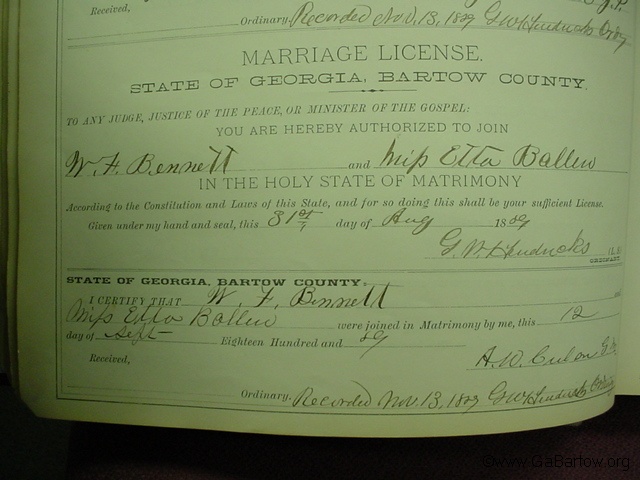 Received,
Ordinary. Recorded Nov. 13, 1889 G W Hendricks Ordy
MARRIAGE LICENSE.
STATE OF GEORGIA, BARTOW COUNTY.
TO ANY JUDGE, JUSTICE OF THE PEACE, OR MINISTER OF THE GOSPEL:
YOU ARE HEREBY AUTHORIZED TO JOIN
W. F. Bennett and Miss Etta Ballew
IN THE HOLY STATE OF MATRIMONY
According to the Constitution and Laws of this State, and for so doing this shall be your sufficient License.
Given under my hand and seal, this 31st day of Aug 1889
G. W. Hendricks [L.S]
ORDINARY.
STATE OF GEORGIA, BARTOW COUNTY:
I CERTIFY THAT W. F. Bennett and
Miss Etta Ballew were joined in Matrimony by me, this 12
day of Sept Eighteen Hundred and 89
A. W.
Received,
Ordinary. Recorded Nov. 13, 1889 G W Hendricks
©www.GaBartow.org